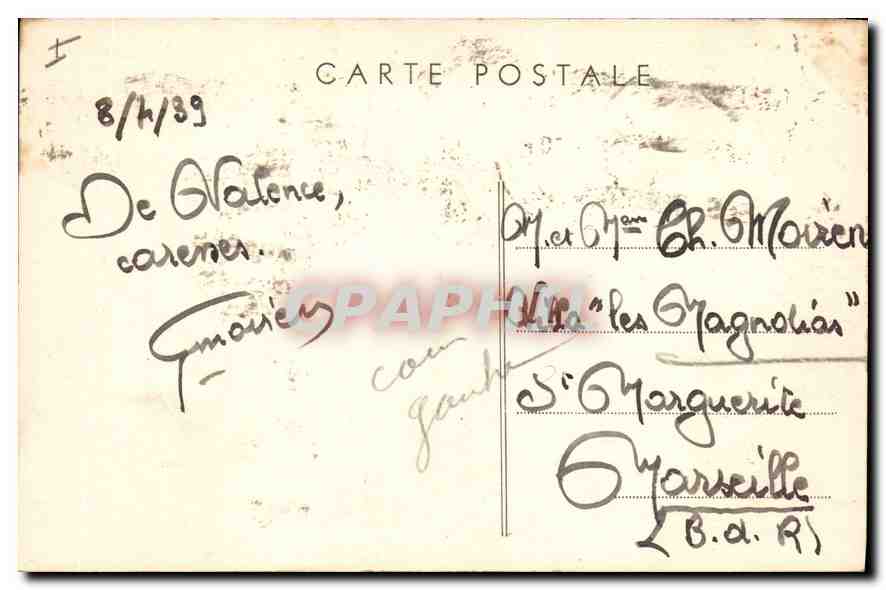 I
CARTE POSTALE
8/4/39
De Valence,
caresses.
GMoirén
CPAPHIL
coin
gauche
M. et Mme Ch. Moirén
Villa "les Magnolias"
St Marguerite
Marseille
(B. d. R)